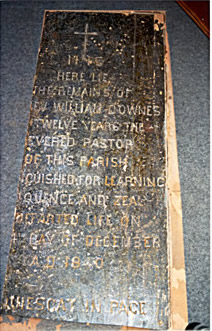 HERE LIE
THE REMAINS OF
EV WILLIAM DOWNES
TWELVE YEARS THE
EVERED PASTOR
OF THIS PARISH
QUISHED FOR LEARNING
QUENCE AND ZEAL
PARTED LIFE ON
DAY OF DECEMBER
A.D. 1840